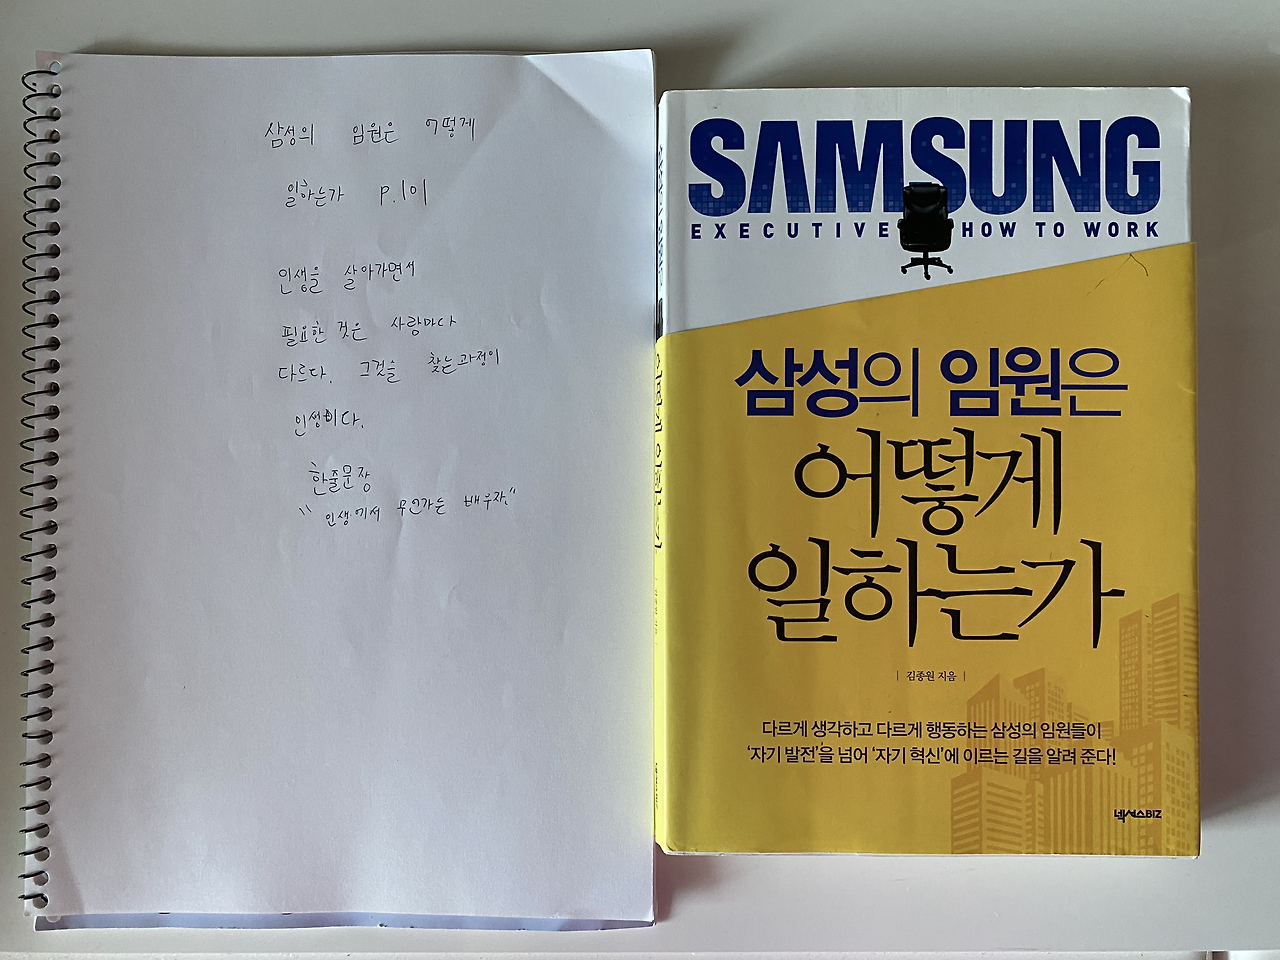 삼성의 임원은 어떻게
일하는가 p.101
인생을 살아가면서
필요한 것은 사람마다
다르다. 그것을 찾는과정이
인생이다.
한줄문장
"인생에서 무언가는 배우자."
SAMSUNG
EXECUTIVE HOW TO WORK
삼성의 임원은
어떻게
일하는가
| 김종원 지음 |
다르게 생각하고 다르게 행동하는 삼성의 임원들이
'자기 발전'을 넘어 '자기 혁신'에 이르는 길을 알려 준다!
넥서스BIZ